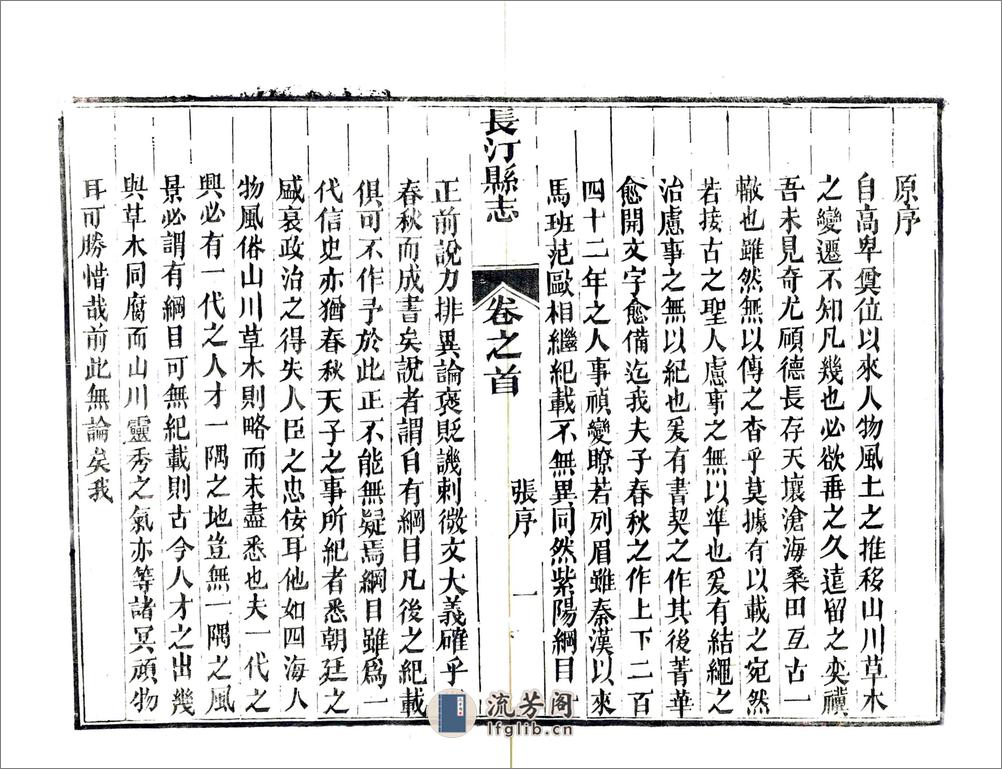 原序
自高卑奠位以來人物風土之推移山川草木
之變遷不知凡幾也必欲垂之久遠留之奕禩
吾未見奇尤碩德長存天壤滄海桑田互古一
轍也雖然無以傳之杳乎莫據有以載之宛然
若接古之聖人慮事之無以準也爰有結繩之
治慮事之無以紀也爰有書契之作其後菁華
愈開文字愈備迄我夫子春秋之作上下二百
四十二年之人事禎變瞭若列眉雖秦漢以來
馬班范歐相繼紀載不無異同然紫陽綱目一
長汀縣志
卷之首
張序
一
正前說力排異論褒貶譏刺微文大義確乎
春秋而成書矣說者謂自有綱目凡後之紀載
俱可不作予於此正不能無疑焉綱目雖爲一
代信史亦猶春秋天子之事所紀者悉朝廷之
盛衰政治之得失人臣之忠佞耳他如四海人
物風俗山川草木則略而未盡悉也夫一代之
興必有一代之人才一隅之地豈無一隅之風
景必謂有綱目可無紀載則古今人才之出幾
與草木同腐而山川靈秀之氣亦等諸冥頑物
耳可勝惜哉前此無論矣我
流芳阁
lfglib.cn